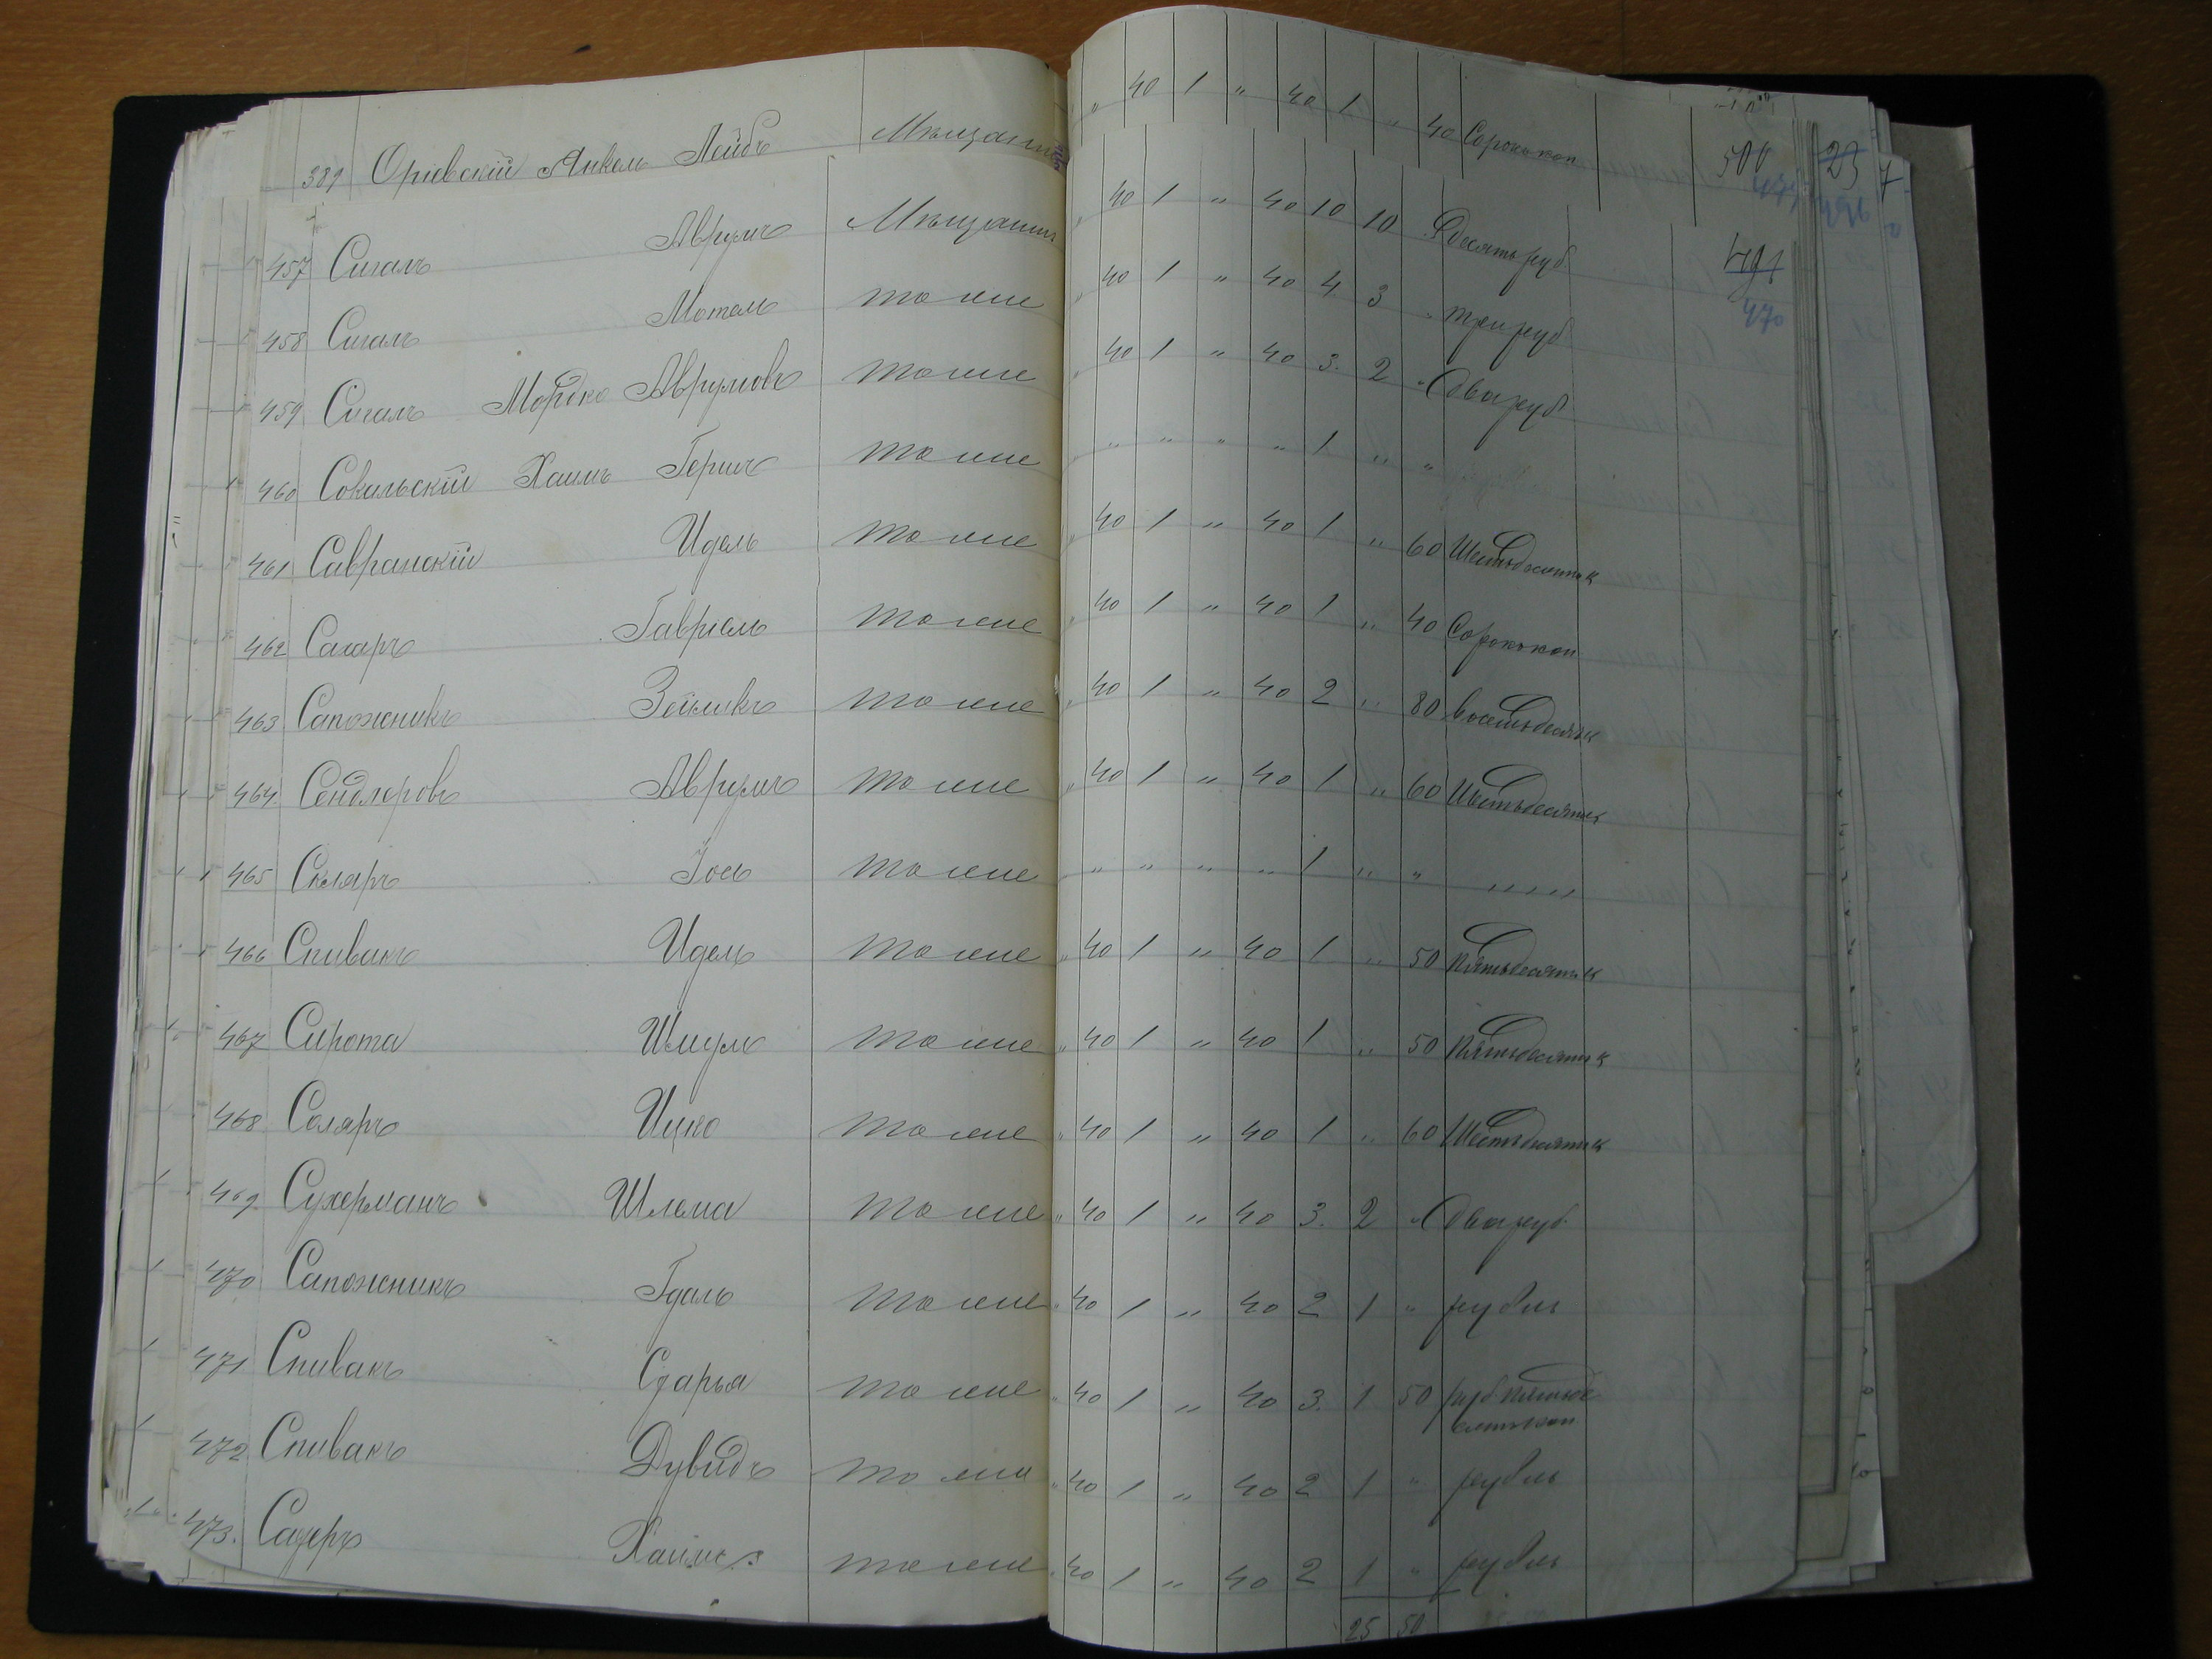 389 Оривскій Янкель Лейбъ Мѣщанинъ „ 40 1 „ 40 1 „ 40 Сорокъ коп
500 23 7
457 Сигалъ Аврумъ Мѣщанинъ „ 40 1 „ 40 10 10 „ Десять руб
491
470
458 Сигалъ Мотель тоже „ 40 1 „ 40 4 3 „ три руб
459 Сигалъ Мордко Аврумовъ тоже „ 40 1 „ 40 3. 2 „ два руб
460 Сокольскій Хаимъ Гершъ тоже „ „ „ „ 1 „ „
461 Савранскій Идель тоже „ 40 1 „ 40 1 „ 60 Шестьдесятъ к
462 Сагаръ Гавріель тоже „ 40 1 „ 40 1 „ 40 Сорокъ коп
463 Сапожникъ Зейликъ тоже „ 40 1 „ 40 2 „ 80 восемьдесятъ к
464 Сендлеровъ Аврумъ тоже „ 40 1 „ 40 1 „ 60 Шестьдесятъ к
465 Скляръ Іось тоже „ „ „ „ 1 „ „ „ „ „ „ „
466 Спивакъ Идель тоже „ 40 1 „ 40 1 „ 50 Пятьдесятъ к
467 Сирота Шмуль тоже „ 40 1 „ 40 1 „ 50 Пятьдесятъ к
468 Соляръ Ицко тоже „ 40 1 „ 40 1 „ 60 Шестьдесятъ к
469 Сухерманъ Шлема тоже „ 40 1 „ 40 3. 2 „ два руб.
470 Сапожникъ Гдаль тоже „ 40 1 „ 40 2 1 „ рубль
471 Спивакъ Сдарья тоже „ 40 1 „ 40 3. 1 50 руб пятьде
сятъ коп
472 Спивакъ Дувидъ тоже „ 40 1 „ 40 2 1 „ рубль
473. Хаимъ тоже „ 40 1 „ 40 2 1 „ рубль
25 50